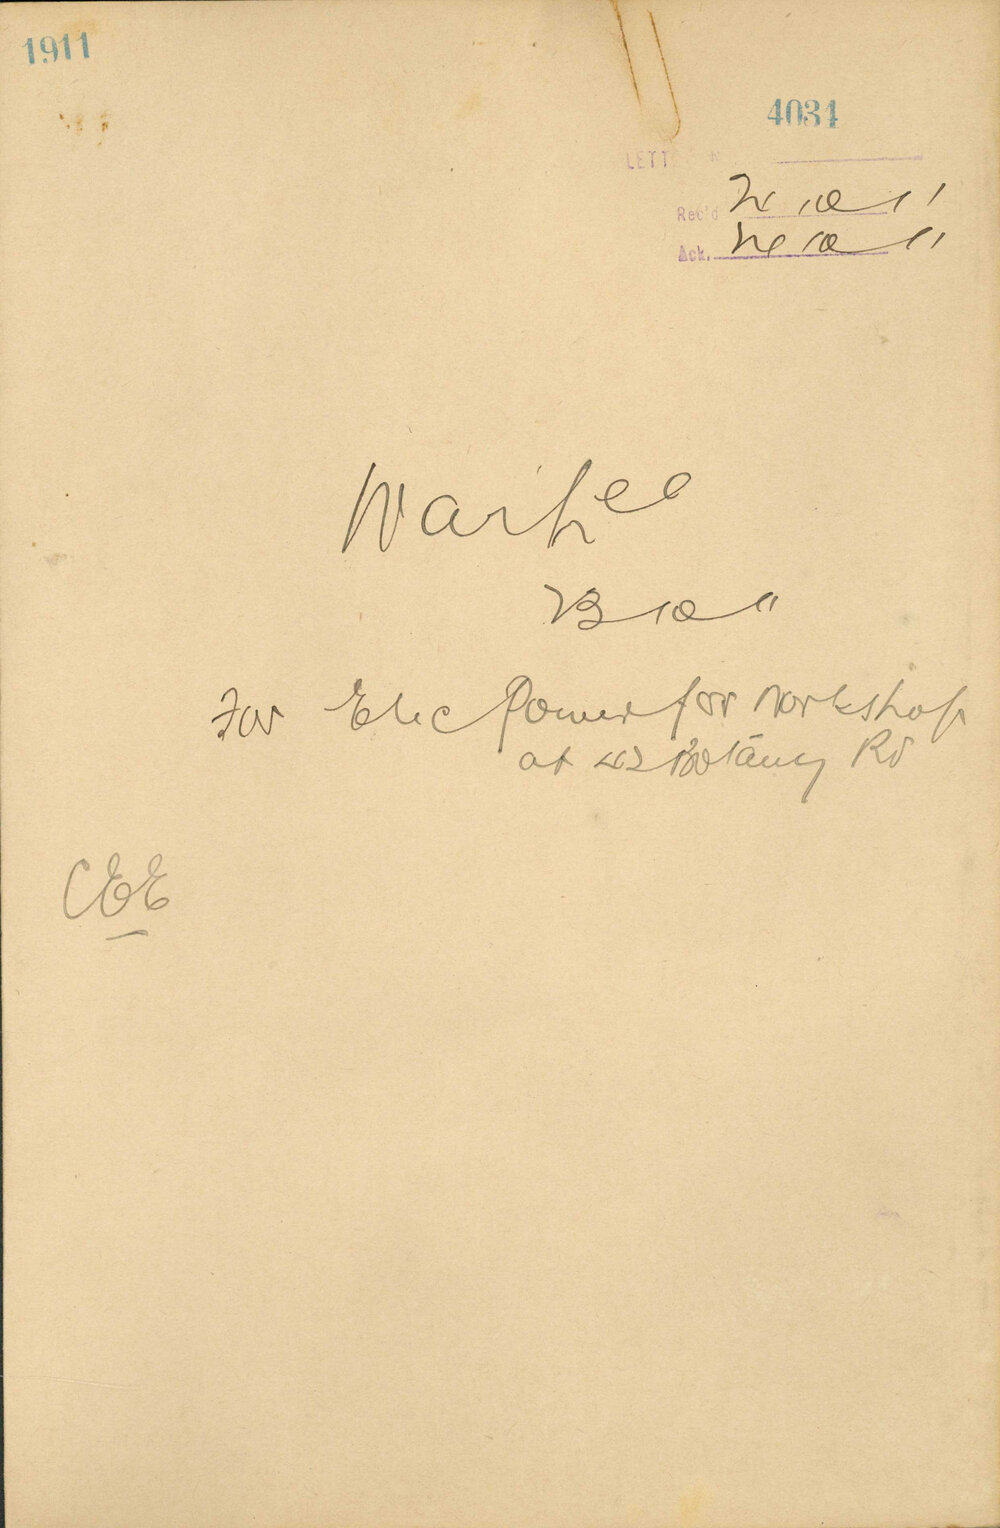 1911
4034
LETT
Rec'd 24 10 11
Ack. 24 10 11
23 10 11
For Elec Power for Workshop
at 42 Botany Rd
CEE